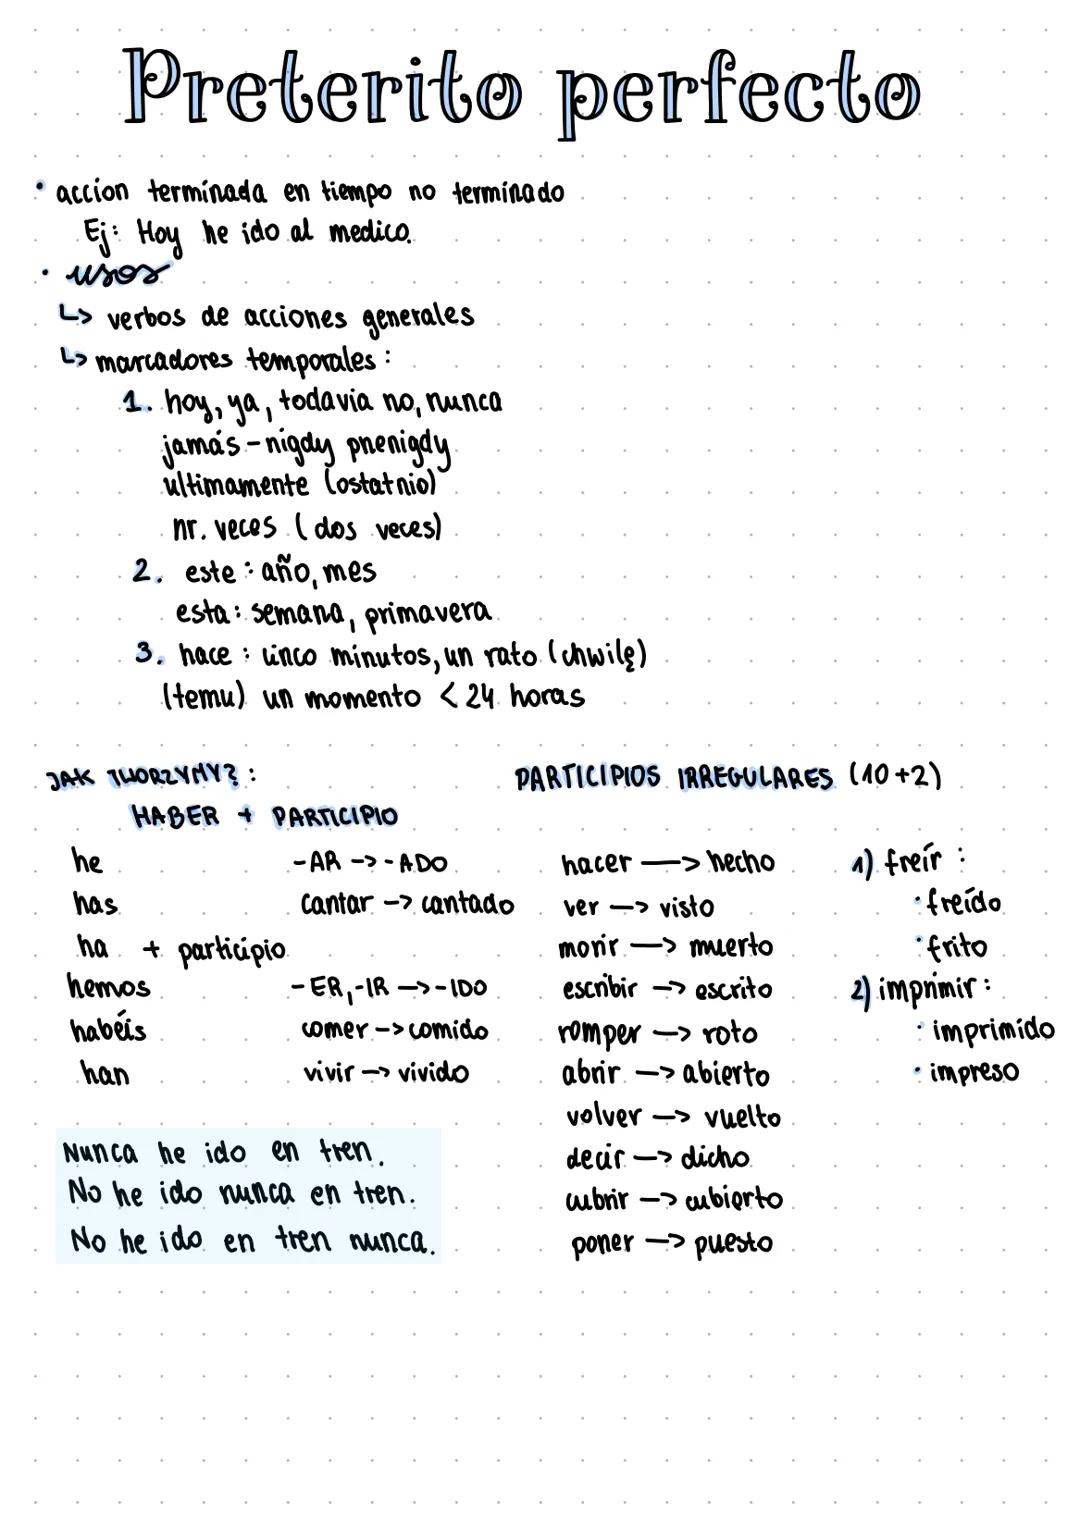 Preterito perfecto
• accion terminada en tiempo no terminado
Ej: Hoy he ido al medico.
• usos
↳ verbos de acciones generales
↳ marcadores temporales:
1. hoy, ya, todavia no, nunca
jamás - nigdy przenigdy
ultimamente (ostatnio)
nr. veces (dos veces)
2. este: año, mes
esta: semana, primavera
3. hace: cinco minutos, un rato (chwilę)
(temu) un momento < 24 horas
JAK TWORZYMY?:
HABER + PARTICIPIO
he
has
ha + participio
hemos
habéis
han
-AR -> -ADO
cantar -> cantado
-ER, -IR -> -IDO
comer -> comido
vivir -> vivido
Nunca he ido en tren.
No he ido nunca en tren.
No he ido en tren nunca.
PARTICIPIOS IRREGULARES (10+2)
hacer -> hecho
ver -> visto
morir -> muerto
escribir -> escrito
romper -> roto
abrir -> abierto
volver -> vuelto
decir -> dicho
cubrir -> cubierto
poner -> puesto
1) freír:
• freído
• frito
2) imprimir:
• imprimido
• impreso